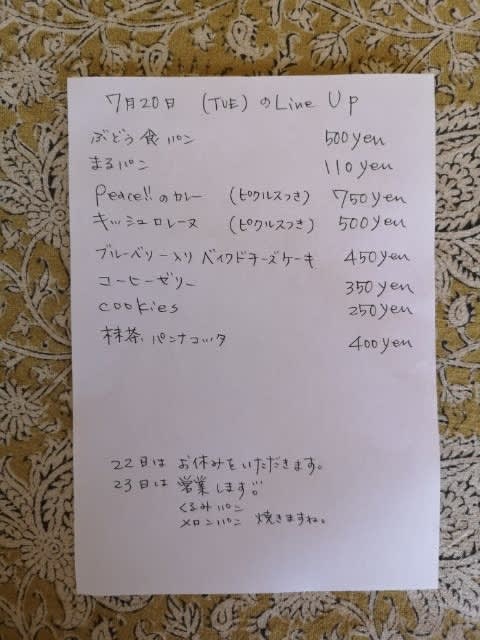 7月20日 (TUE) のLine Up
ぶどう食パン 500yen
まるパン 110yen
Peace!!のカレー (ピクルスつき) 750yen
キッシュロレーヌ (ピクルスつき) 500yen
ブルーベリー入りベイクドチーズケーキ 450yen
コーヒーゼリー 350yen
cookies 250yen
抹茶パンナコッタ 400yen
22日は お休みをいただきます。
23日は 営業します!!
くるみパン
メロンパン 焼きますね。